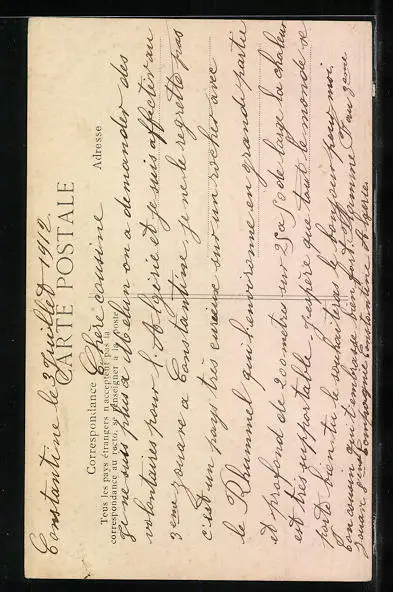 Constantine le 3 Juillet 1912
CARTE POSTALE
Correspondance
Adresse
Tous les pays étrangers n'acceptent pas la
correspondance au recto, se renseigner à la poste
Chère cousine
Je ne suis plus a Melun on a demander des
volontaires pour l'Algérie et je suis affecter au
3eme zouave a Constantine, je ne le regrette pas
c'est un pays très curieux sur un rocher avec
le Rhummel qui l'environne en grande partie
et profond de 200 metres sur 25 a 50 de large la chaleur
est très supportable. J'espère que tout le monde se
porte bien tu le souhaiteras le bonjour pour moi.
ton cousin qui t'embrasse bien fort au 3eme
zouave Compagnie Constantine Algérie.